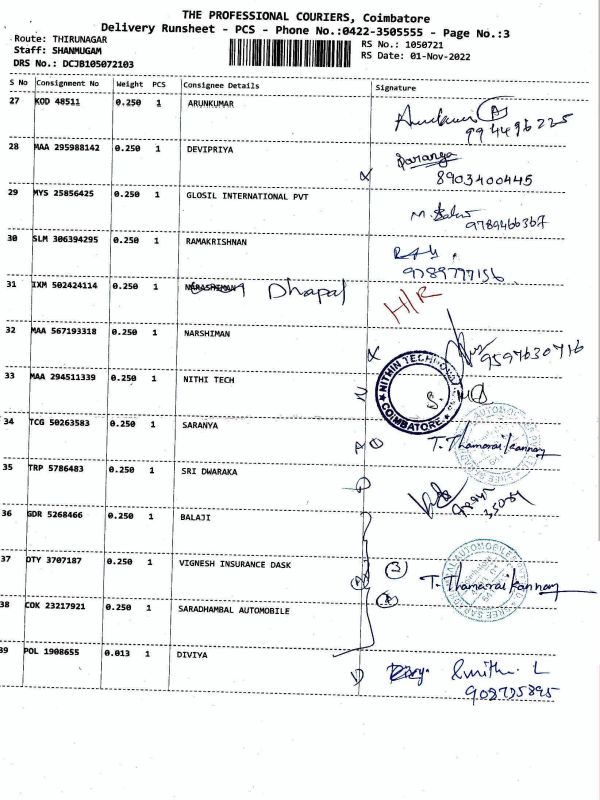 THE PROFESSIONAL COURIERS, Coimbatore
Delivery Runsheet - PCS - Phone No.:0422-3505555 - Page No.:3
Route: THIRUNAGAR
Staff: SHANMUGAM
DRS No.: DCJB105072103
RS No.: 1050721
RS Date: 01-Nov-2022
S No Consignment No Weight PCS Consignee Details Signature
27 KOD 48511 0.250 1 ARUNKUMAR
28 MAA 295988142 0.250 1 DEVIPRIYA
8903400445
29 MYS 25856425 0.250 1 GLOSIL INTERNATIONAL PVT
9789466367
30 SLM 306394295 0.250 1 RAMAKRISHNAN
9789777156
31 IXM 502424114 0.250 1 NARASHIMAN Dhapal H/R
32 MAA 567193318 0.250 1 NARSHIMAN
9597630716
33 MAA 294511339 0.250 1 NITHI TECH
COIMBATORE
34 TCG 50263583 0.250 1 SARANYA
T. Thamaraikannan
35 TRP 5786483 0.250 1 SRI DWARAKA
36 GDR 5268466 0.250 1 BALAJI
37 OTY 3707187 0.250 1 VIGNESH INSURANCE DASK
3
T. Thamaraikannan
38 COK 23217921 0.250 1 SARADHAMBAL AUTOMOBILE
39 POL 1908655 0.013 1 DIVIYA
902725895